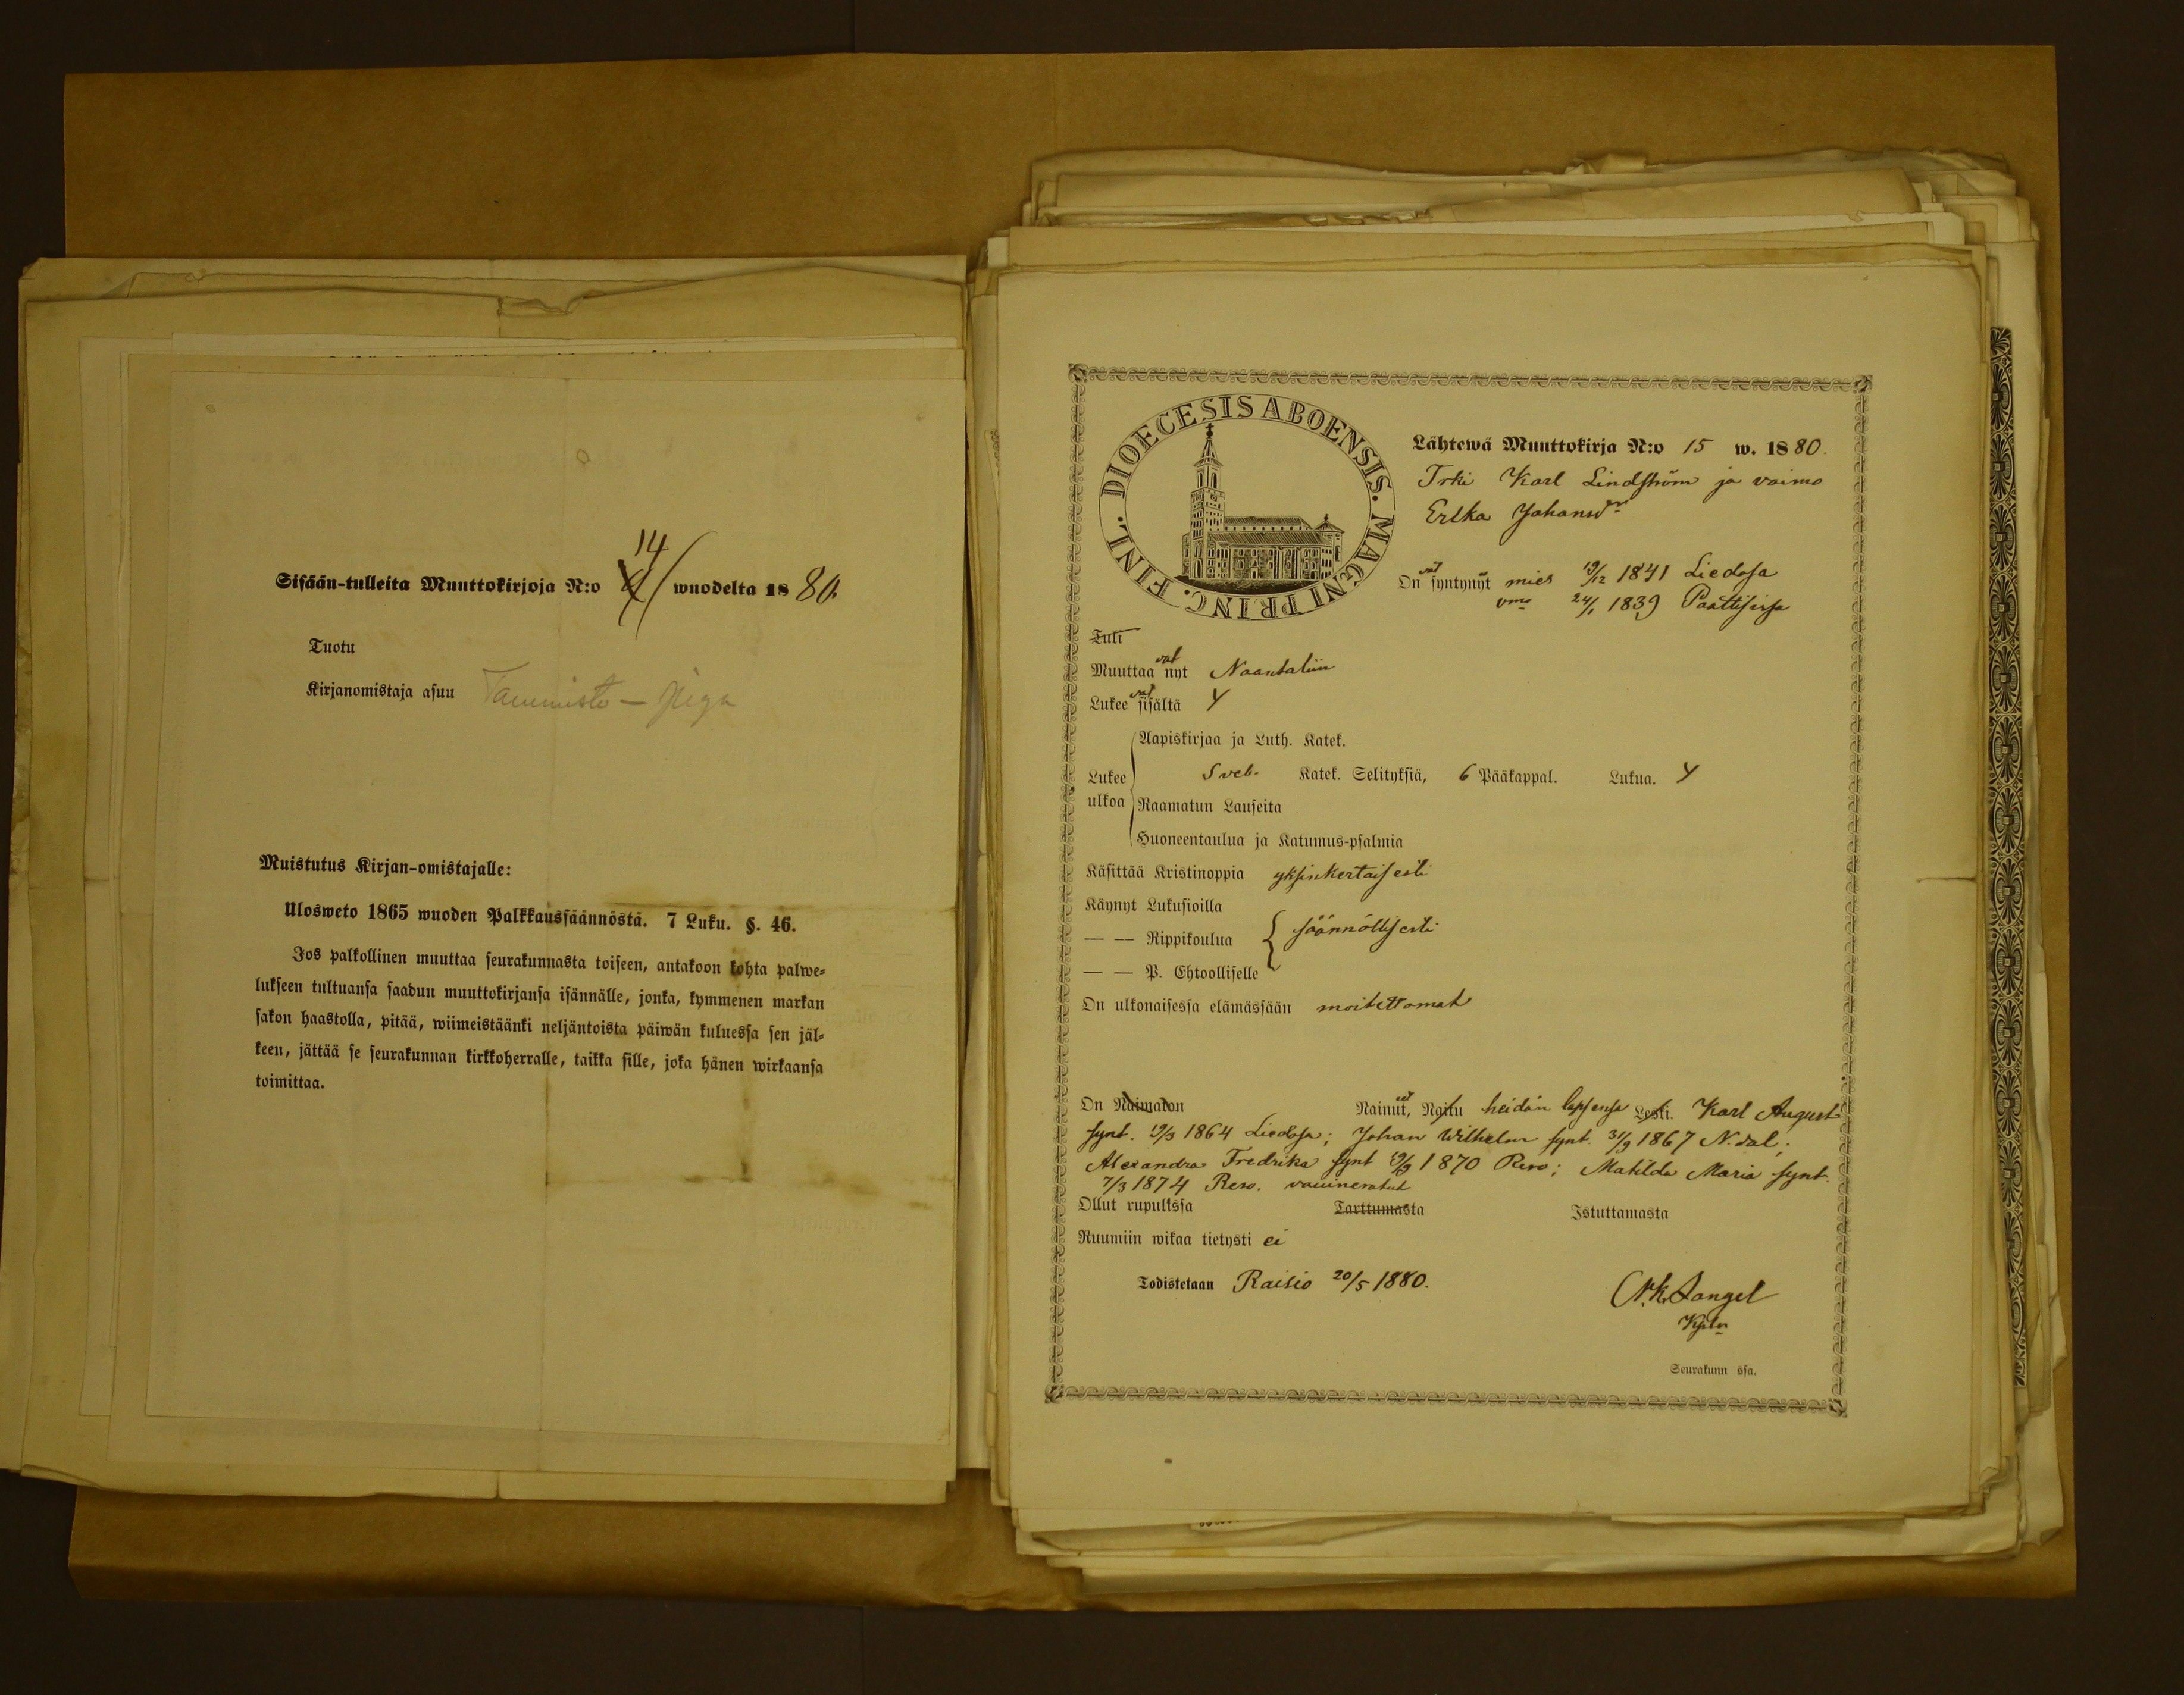 14
Sisään-tulleita Muuttokirjoja N:o wuodelta 1880.
Tuotu
Kirjanomistaja asuu Tammisto - Piga
Muistutus Kirjan-omistajalle:
Ulosweto 1865 wuoden Palkkaussäännöstä. 7 Luku. §. 46.
Jos palkollinen muuttaa seurakunnasta toiseen, antakoon kohta palwe-
lukseen tultuansa saadun muuttokirjansa isännälle, jonka, kymmenen markan
sakon haastolla, pitää, wiimeistäänki neljäntoista päiwän kuluessa sen jäl-
keen, jättää se seurakunnan kirkkoherralle, taikka sille, joka hänen wirkaansa
toimittaa.
DIOECESIS ABOENSIS. MAGNI PRINC. FINL.
Lähtewä Muuttokirja N:o 15 w. 1880.
Karl Lindström ja vaimo
Johansdr
On vat syntynyt mies 19/12 1841 Liedosa
vmo 24/1 1839 Paattisissa
Tuli
Muuttaa vat nyt Naantaliin
Lukee vat sisältä Y
Aapiskirjaa ja Luth. Katek.
Lukee ulkoa Sveb. Katek. Selityksiä, 6 Pääkappal. Lukua. Y
Raamatun Lauseita
Huoneentaulua ja Katumus-psalmia
Käsittää Kristinoppia yksinkertaisesti
Käynyt Lukusioilla
— — Rippikoulua säännöllisesti
— — P. Ehtoolliselle
On ulkonaisessa elämässään moitettomat
On Naimaton Nainut, Naitu heidän lapsensa Leski. Karl August
synt. 19/3 1864 Liedosa; Johan Wilhelm synt. 31/9 1867 N.dal;
Alexandra Fredrika synt 19/9 1870 Reso; Matilda Maria synt.
7/3 1874 Reso.
Ollut rupulissa Tarttumasta Istuttamasta
Ruumiin wikaa tietysti ei
Todistetaan Raisio 20/5 1880.
Kpln
Seurakunn ssa.